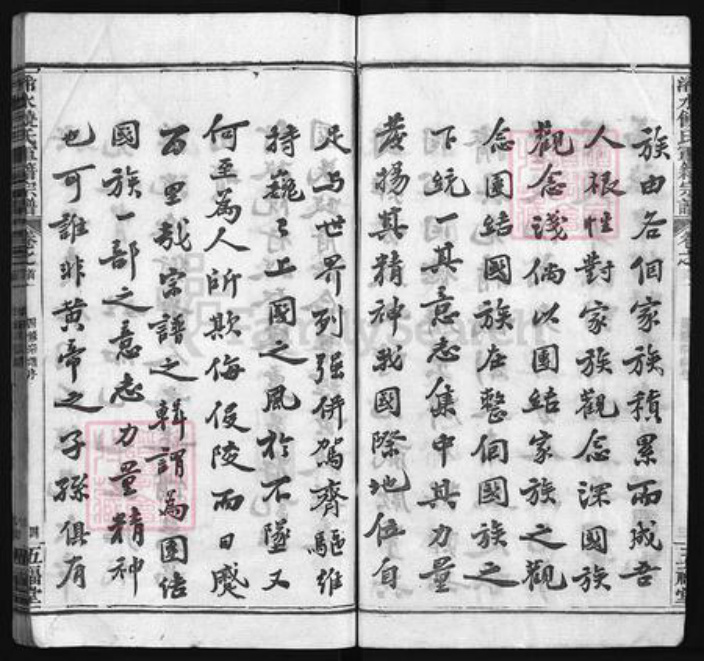 族由各個家族積累而成吾
人根性對家族觀念深國族
觀念淺倘以團結家族之觀
念團結國族在整個國族之
下統一其意志集中其力量
發揚其精神我國際地位自
足与世界列强併駕齊驅維
持巍巍上國之風於不墜又
何至為人所欺侮侵陵而日蹙
百里哉宗譜之輯謂為團結
國族一部之意志力量精神
也可誰非黃帝之子孫俱有
五福堂
FamilySearch